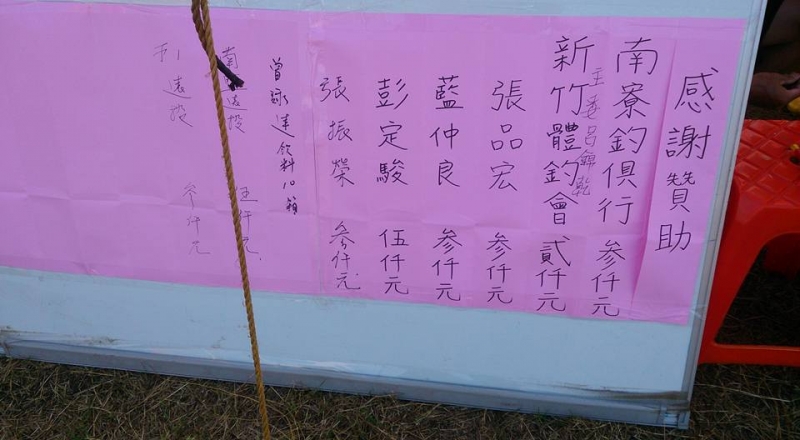 感謝贊助
南寮釣俱行 參仟元
主委呂錦乾
新竹體釣會 貳仟元
張品宏 參仟元
藍仲良 參仟元
彭定駿 伍仟元
張振榮 參仟元
曾詠達飲料10箱
南 遠投 五仟元
遠投 參仟元